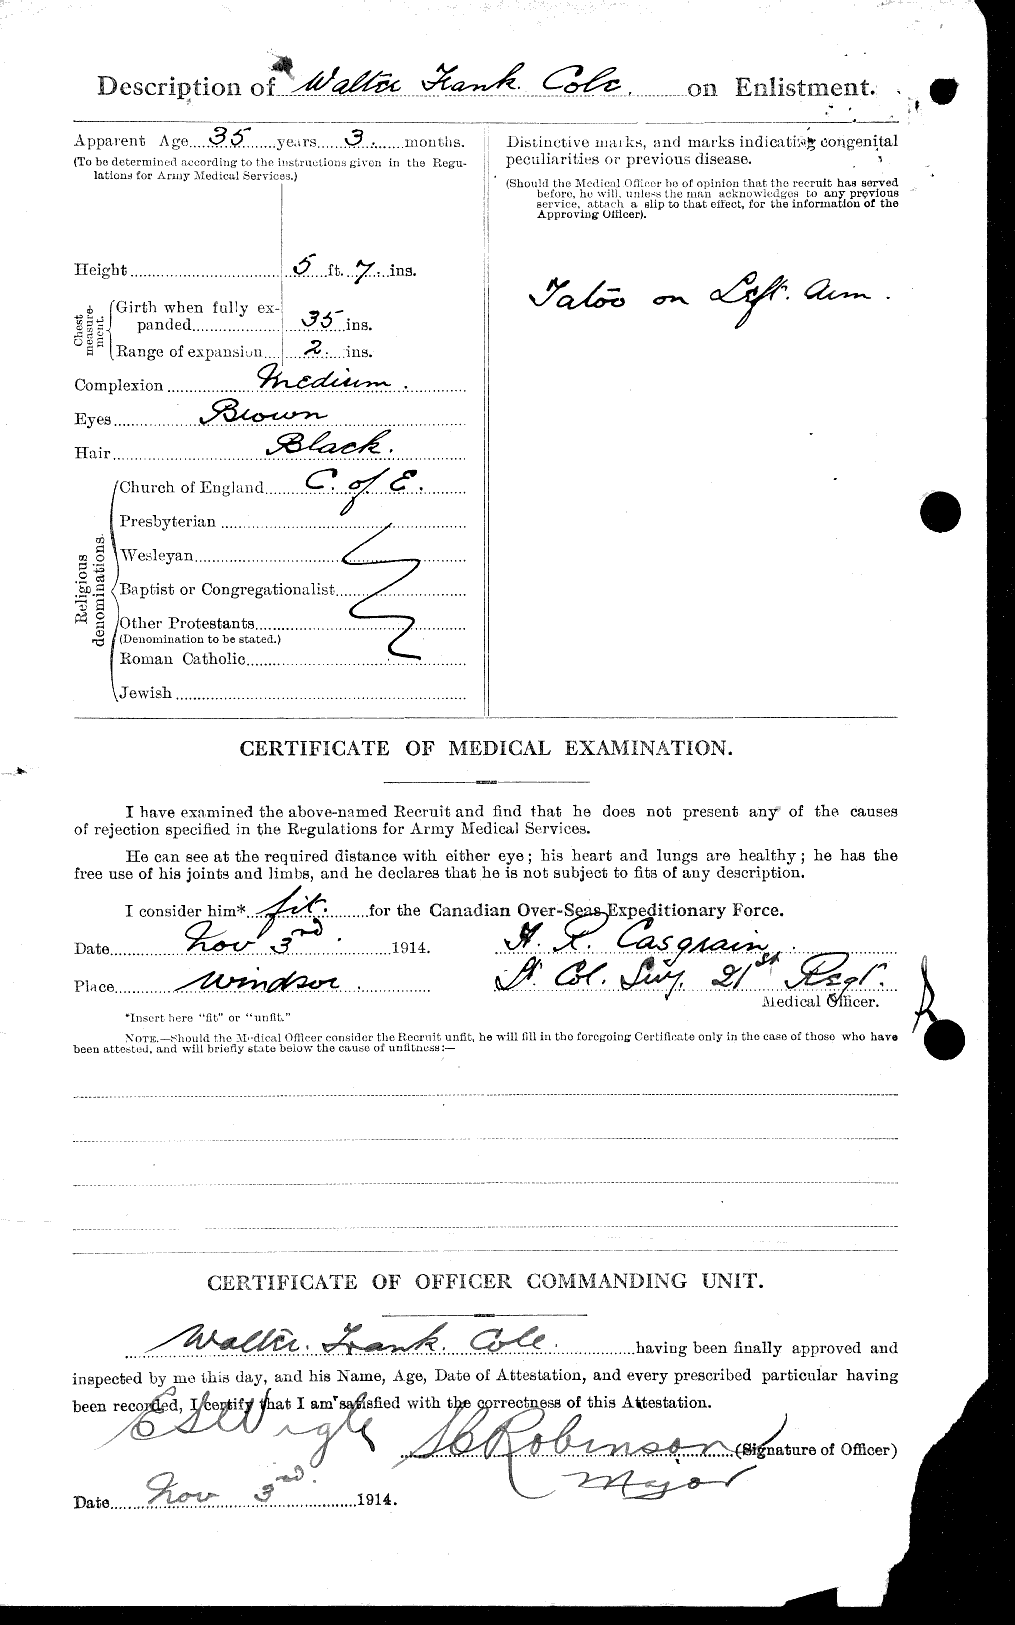 Description of Walter Frank Cole. on Enlistment.
Apparent Age 35 years 3 months.
(To be determined according to the instructions given in the Regu-
lations for Army Medical Services.)
Height 5 ft. 7 ins.
Chest measure-ment.
Girth when fully ex-
panded 35 ins.
Range of expansion 2 ins.
Complexion Medium.
Eyes Brown
Hair Black.
Religious denominations.
Church of England C. of E.
Presbyterian
Wesleyan
Baptist or Congregationalist
Other Protestants
(Denomination to be stated.)
Roman Catholic
Jewish
Distinctive marks, and marks indicating congenital
peculiarities or previous disease.
(Should the Medical Officer be of opinion that the recruit has served
before, he will, unless the man acknowledges to any previous
service, attach a slip to that effect, for the information of the
Approving Officer).
Tatoo on Left. Arm.
CERTIFICATE OF MEDICAL EXAMINATION.
I have examined the above-named Recruit and find that he does not present any of the causes
of rejection specified in the Regulations for Army Medical Services.
He can see at the required distance with either eye; his heart and lungs are healthy; he has the
free use of his joints and limbs, and he declares that he is not subject to fits of any description.
I consider him* fit. for the Canadian Over-Seas Expeditionary Force.
Date Nov 3rd. 1914. H. R. Casgrain
Place Windsor. Lt Col. 21st Regt.
Medical Officer.
*Insert here "fit" or "unfit."
NOTE.—Should the Medical Officer consider the Recruit unfit, he will fill in the foregoing Certificate only in the case of those who have
been attested, and will briefly state below the cause of unfitness:—
CERTIFICATE OF OFFICER COMMANDING UNIT.
Walter. Frank. Cole. having been finally approved and
inspected by me this day, and his Name, Age, Date of Attestation, and every prescribed particular having
been recorded, I certify that I am satisfied with the correctness of this Attestation.
E S Wigle
Robinson (Signature of Officer)
Major
Date Nov 3rd. 1914.